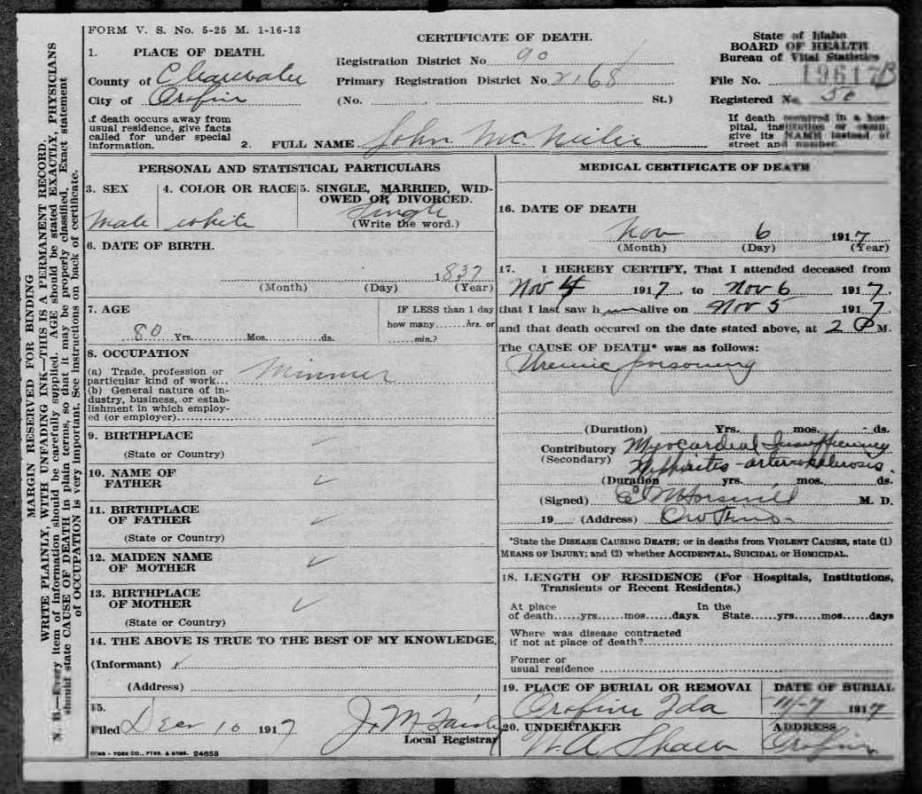 MARGIN RESERVED FOR BINDING
WRITE PLAINLY, WITH UNFADING INK—THIS IS A PERMANENT RECORD.
N. B.—Every item of information should be carefully supplied. AGE should be stated EXACTLY. PHYSICIANS
should state CAUSE OF DEATH in plain terms, so that it may be properly classified. Exact statement
of OCCUPATION is very important. See instructions on back of certificate.
FORM V. S. No. 5-25 M. 1-16-13
CERTIFICATE OF DEATH.
State of Idaho
BOARD OF HEALTH
Bureau of Vital Statistics
1. PLACE OF DEATH.
Registration District No 90
County of Clearwater
Primary Registration District No 2168
File No. 19617B
City of Orofino
(No. St.)
Registered No. 50
If death occurs away from
usual residence, give facts
called for under special
information.
If death occurred in a hos-
pital, institution or camp
give its NAME instead of
street and number.
2. FULL NAME John Mc
PERSONAL AND STATISTICAL PARTICULARS
3. SEX
male
4. COLOR OR RACE
white
5. SINGLE, MARRIED, WID-
OWED OR DIVORCED.
Single
(Write the word.)
6. DATE OF BIRTH.
1837
(Month) (Day) (Year)
7. AGE
80 Yrs. Mos. ds.
IF LESS than 1 day
how many hrs. or
min.?
8. OCCUPATION
(a) Trade, profession or
particular kind of work... Minner
(b) General nature of in-
dustry, business, or estab-
lishment in which employ-
ed (or employer)
9. BIRTHPLACE ✓
(State or Country)
10. NAME OF
FATHER ✓
11. BIRTHPLACE
OF FATHER ✓
(State or Country)
12. MAIDEN NAME
OF MOTHER ✓
13. BIRTHPLACE
OF MOTHER ✓
(State or Country)
14. THE ABOVE IS TRUE TO THE BEST OF MY KNOWLEDGE.
(Informant) ✓
(Address)
15.
Filed Dec 10 1917 J. M.
Local Registrar
24653
MEDICAL CERTIFICATE OF DEATH
16. DATE OF DEATH
Nov 6 1917
(Month) (Day) (Year)
17. I HEREBY CERTIFY, That I attended deceased from
Nov 4 1917, to Nov 6 1917,
that I last saw h alive on Nov 5 1917
and that death occured on the date stated above, at 2 P M.
The CAUSE OF DEATH* was as follows:
Uremic poisoning
(Duration) Yrs. mos. ds.
Contributory Myocardial Insufficiency
(Secondary) Nephritis - arteriosclerosis.
(Duration yrs. mos. ds.
(Signed) E W Horswill M. D.
19 (Address) Orofino
*State the DISEASE CAUSING DEATH; or in deaths from VIOLENT CAUSES, state (1)
MEANS OF INJURY; and (2) whether ACCIDENTAL, SUICIDAL or HOMICIDAL.
18. LENGTH OF RESIDENCE (For Hospitals, Institutions,
Transients or Recent Residents.)
At place In the
of death yrs. mos. days State yrs. mos. days
Where was disease contracted
if not at place of death?
Former or
usual residence
19. PLACE OF BURIAL OR REMOVAL
Orofino Ida
DATE OF BURIAL
11-7 1917
20. UNDERTAKER
W A Shaw
ADDRESS
Orofino